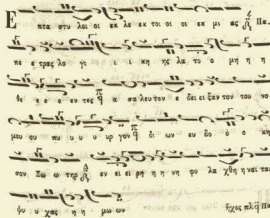 Ε πτα στυ λοι οι εκ λε εκ τοι οι οι εκ μι ας
πε ε τρας λο γι ι ι κη ης λα το ο μη η η
θε ε ε εν τες α σα λευ τον ε δει ει ξαν τον του να
μου ου πυ υ υ υρ γον δι ων ευ δο ο κη
σον Σω τηρ εν ει ει ρη η η νη φυ λα χθη ναι τας
ψυ χας η η μω ων ἦχος πλ